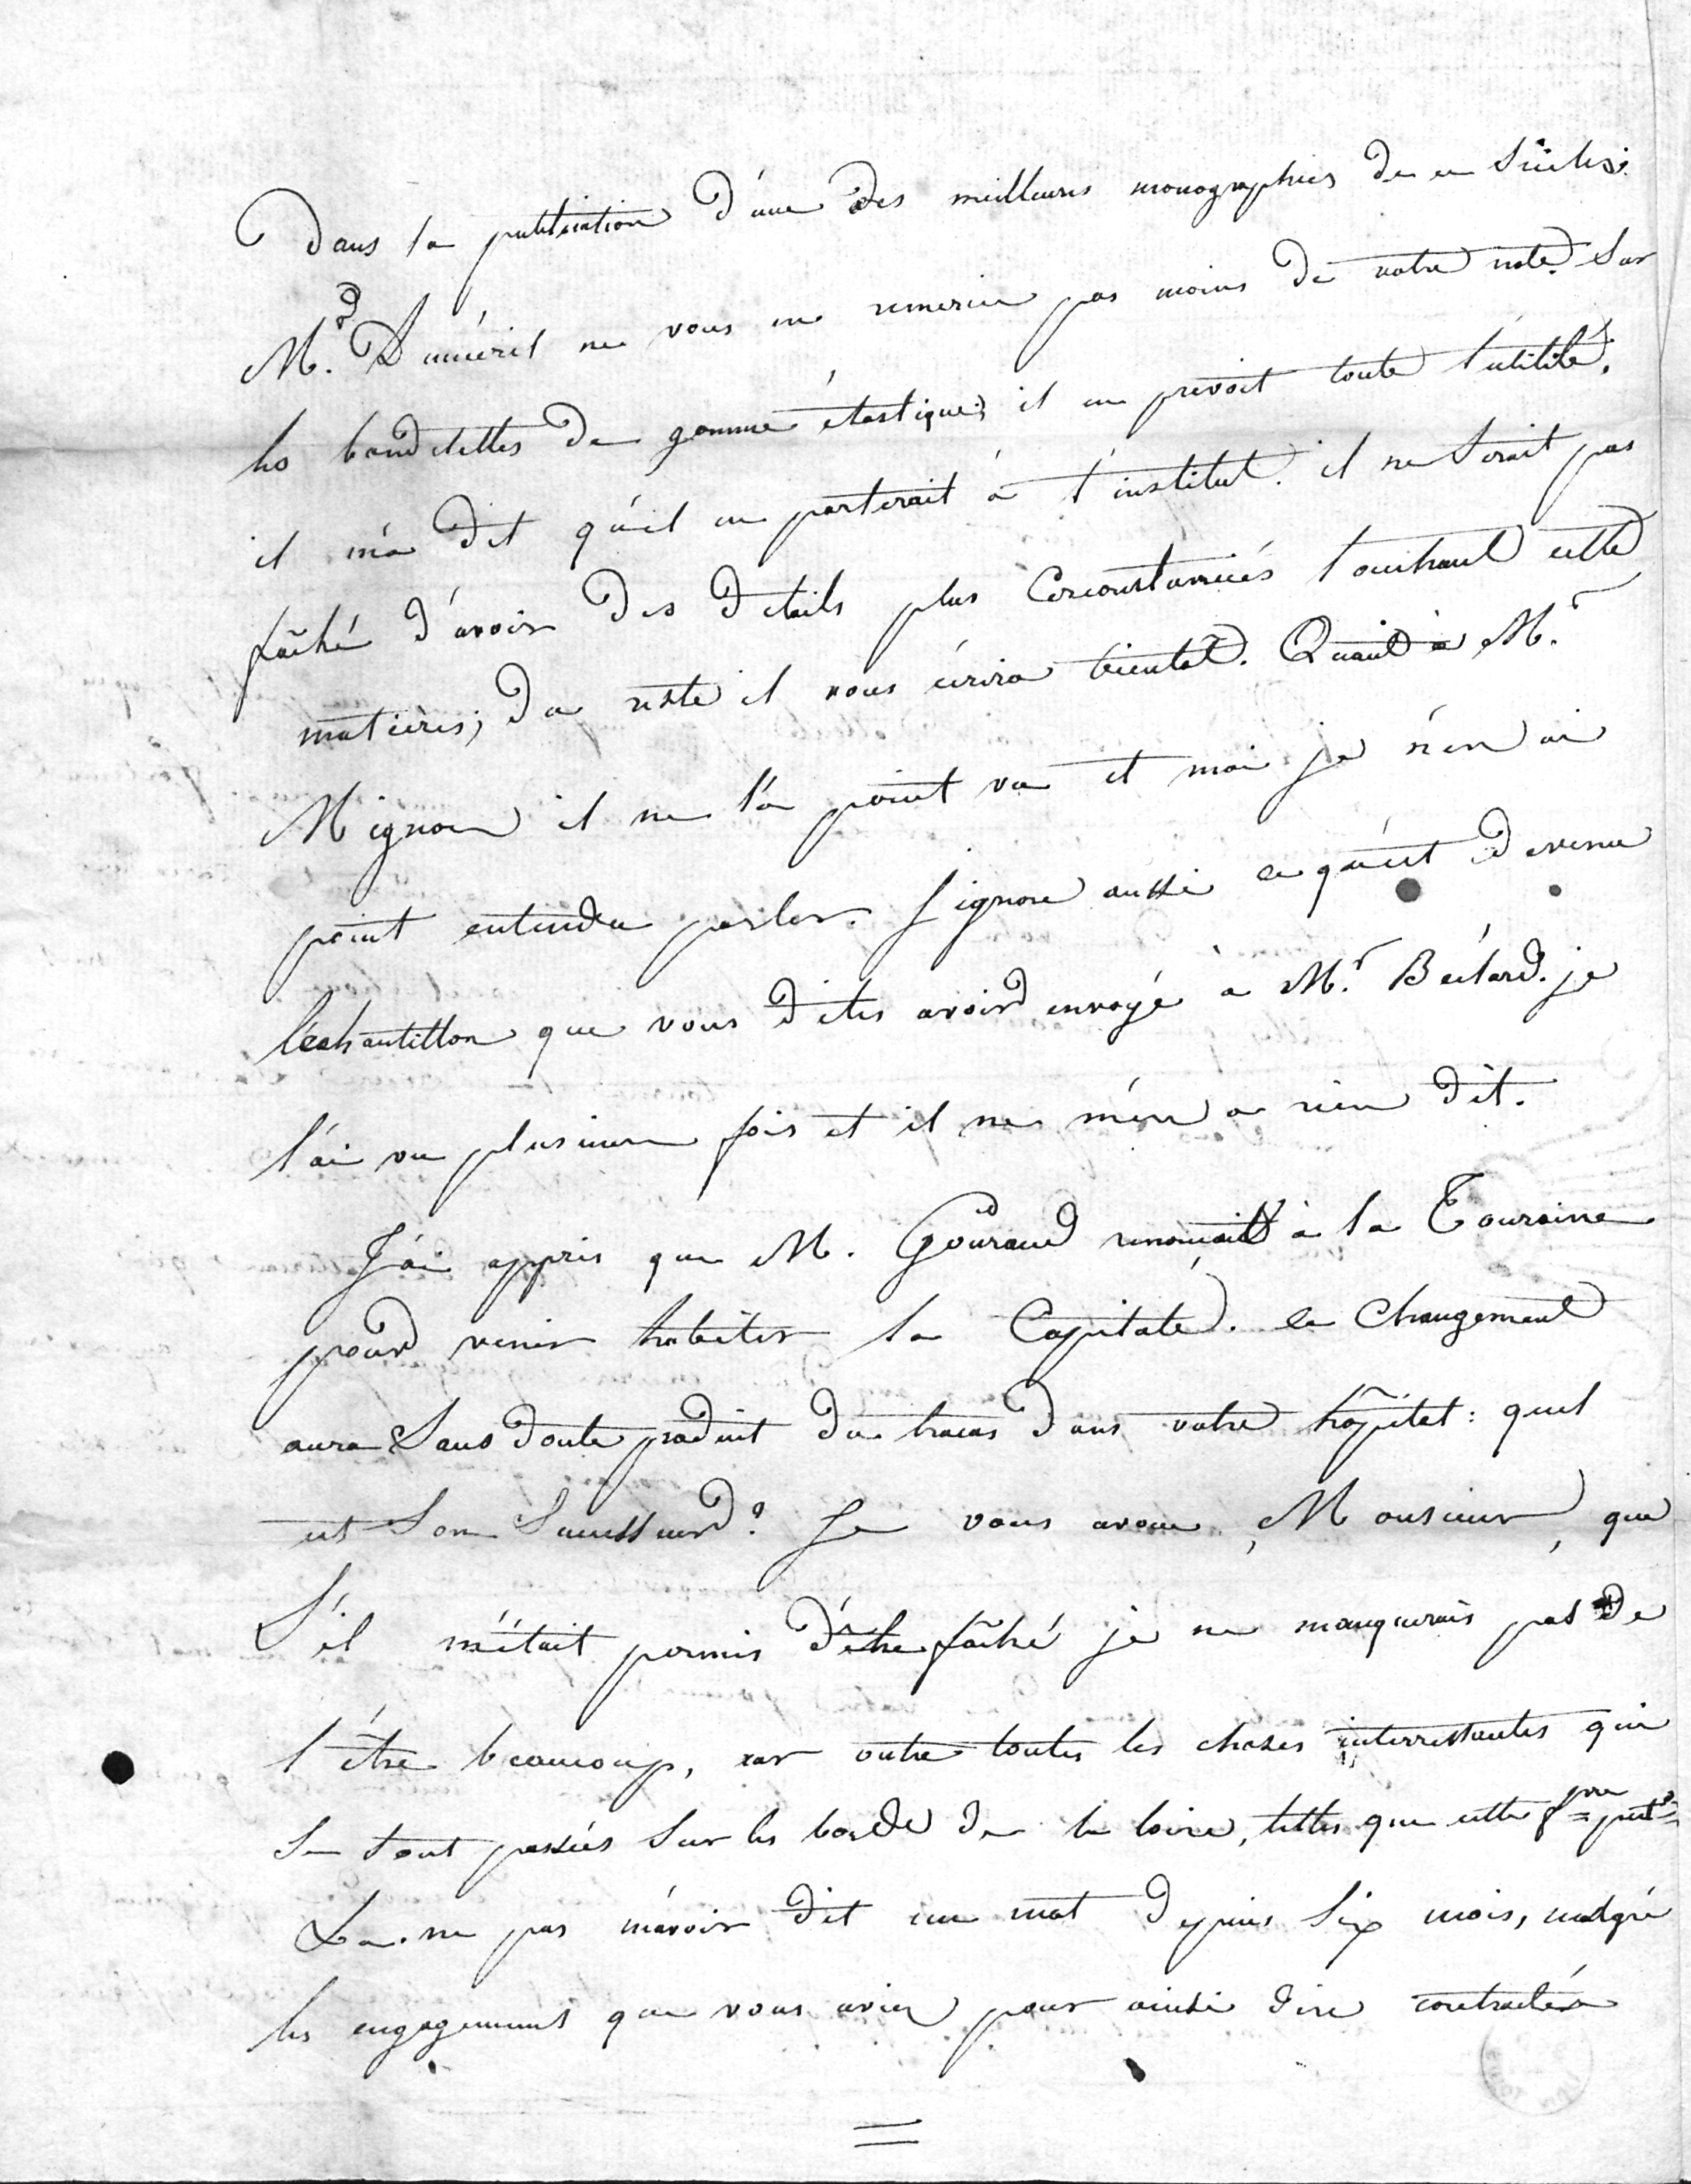 Dans la publication d'une des meilleures monographies de ce siècle.
Mr. Duméril ne vous en remercie pas moins de votre note sur
les bandelettes de gomme élastique; il en prévoit toute l'utilité,
il m'a dit qu'il en parlerait à l'institut. il ne serait pas
fâché d'avoir des details plus circonstanciés touchant cette
matières; du reste il vous écrira bientot. Quant à Mr.
Mignon il ne l'a point vu et moi je n'en ai
point entendu parler. J'ignore aussi ce qu'est devenu
l'échantillon que vous dites avoir envoyé à Mr. Béclard. je
l'ai vu plusieurs fois et il ne m'en a rien dit.
J'ai appris que M. Gouraud renonçait à la Touraine
pour venir habiter la Capitale. ce changement
aura sans doute produit du tracas dans votre hôpital: quel
est son Successeur? Je vous avoue, Monsieur, que
S'il m'était permis d'être fâché je ne manquerais pas de
l'être beaucoup, car outre toutes les choses interressantes qui
se sont passées sur les bords de la loire, telles que cette
ne pas m'avoir dit un mot depuis six mois, malgré
les engagemens que vous aviez pour ainsi dire contractés